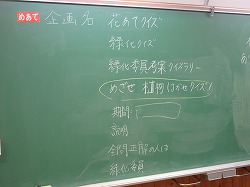 めあて 企画名 花あてクイズ
緑化クイズ
緑化委員考案クイズラリー
めざせ 植物ハカセクイズ
期間:
説明
全問正解の人は
緑化委員
あ